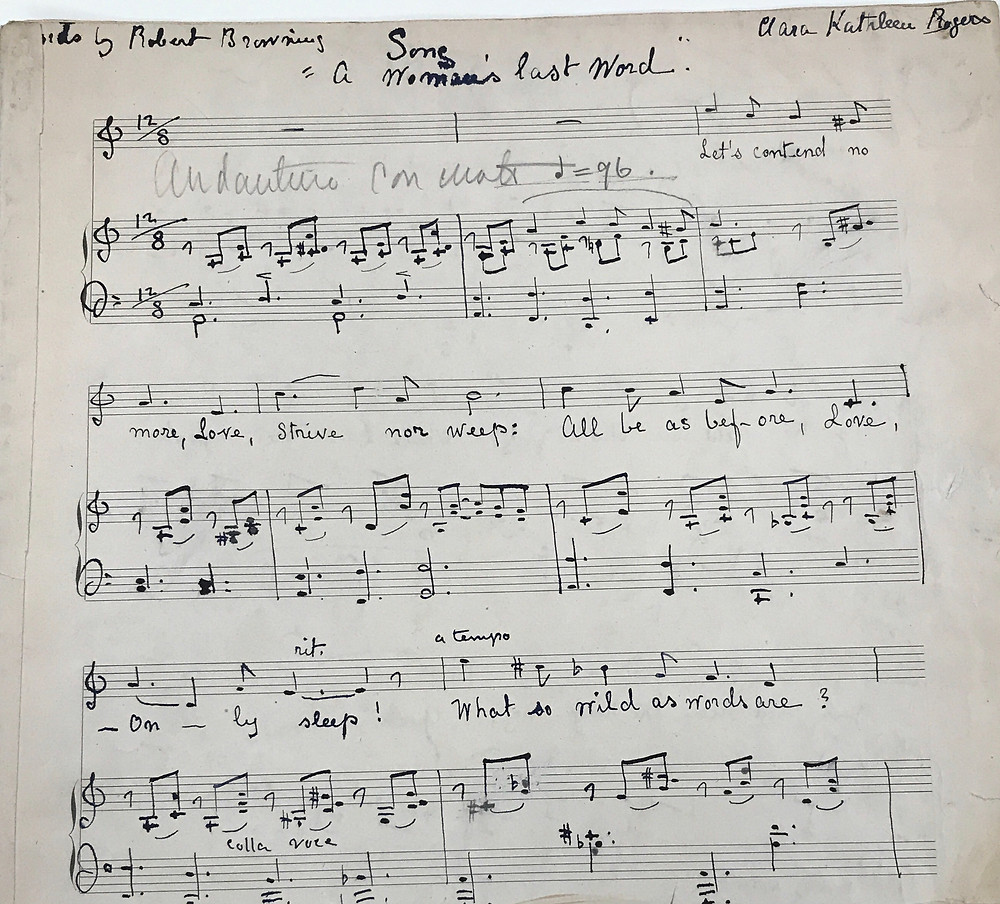 by Robert Browning
Clara Kathleen Rogers
Song
"A Woman's last Word".
12/8
Let's contend no
Andantino con moto ♩=96.
12/8
12/8
more, Love, Strive nor weep: All be as bef-ore, Love,
rit. a tempo
- On - ly sleep! What so wild as words are ?
colla voce